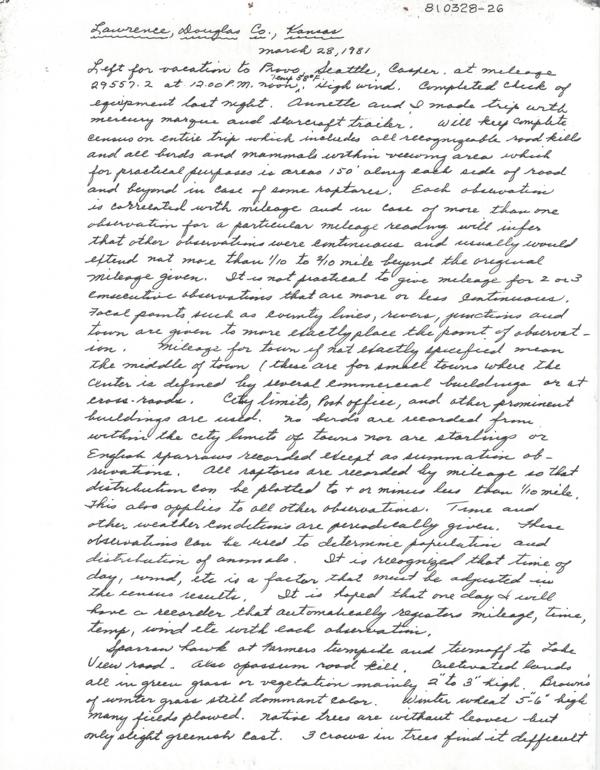 810328-26
Lawrence, Douglas Co., Kansas
march 28, 1981
Left for vacation to Provo, Seattle, Casper. at mileage
29557.2 at 12:00 P.M. noon, Temp 58°F. High wind. Completed check of
equipment last night. Annette and I made trip with
mercury marque and starcraft trailer. Will keep complete
census on entire trip which includes all recognizeable road kills
and all birds and mammals within viewing area which
for practical purposes is areas 150' along each side of road
and beyond in case of some raptores. Each observation
is correlated with mileage and in case of more than one
observation for a particular mileage reading will infer
that other observations were continuous and usually would
extend not more than 1/10 to 2/10 mile beyond the original
mileage given. It is not practical to give mileage for 2 or 3
consecutive observations that are more or less continuous.
Focal points such as county lines, rivers, junctions and
town are given to more exactly place the point of observat-
ion. Mileage for town if not exactly specified mean
the middle of town (these are for small towns where the
center is defined by several commercial buildings or at
cross-roads. City limits, Post office, and other prominent
buildings are used. no birds are recorded from
within the city limits of towns nor are starlings or
English sparrows recorded except as summation ob-
servations. All raptores are recorded by mileage so that
distribution can be plotted to + or minus less than 1/10 mile.
This also applies to all other observations. Time and
other weather conditions are periodically given. These
observations can be used to determine population and
distribution of animals. It is recognized that time of
day, wind, etc is a factor that must be adjusted in
the census results. It is hoped that one day I will
have a recorder that automatically registers mileage, time,
temp, wind etc with each observation.
Sparrow hawk at Farmers turnpide and turnoff to Lake
View road. Also opossum road kill. Cultivated lands
all in green grass or vegetation mainly 2" to 3" high. Brown's
of winter grass still dominant color. Winter wheat 5"-6" high
many fields plowed. native trees are without leaves but
only slight greenish cast. 3 crows in trees find it difficult